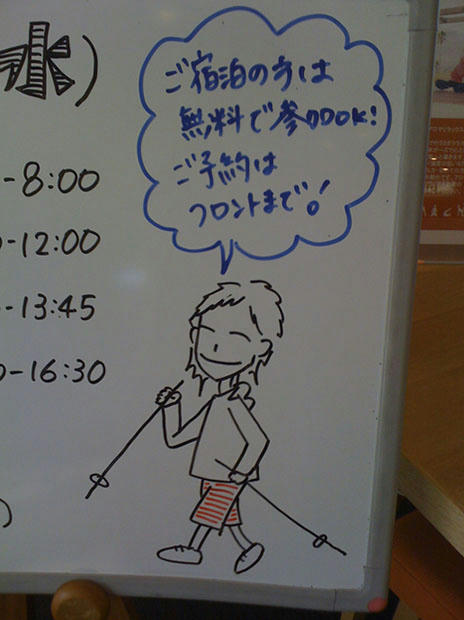 水)
-8:00
-12:00
-13:45
-16:30
)
ご宿泊の方は
無料で参加OK!
ご予約は
フロントまで!